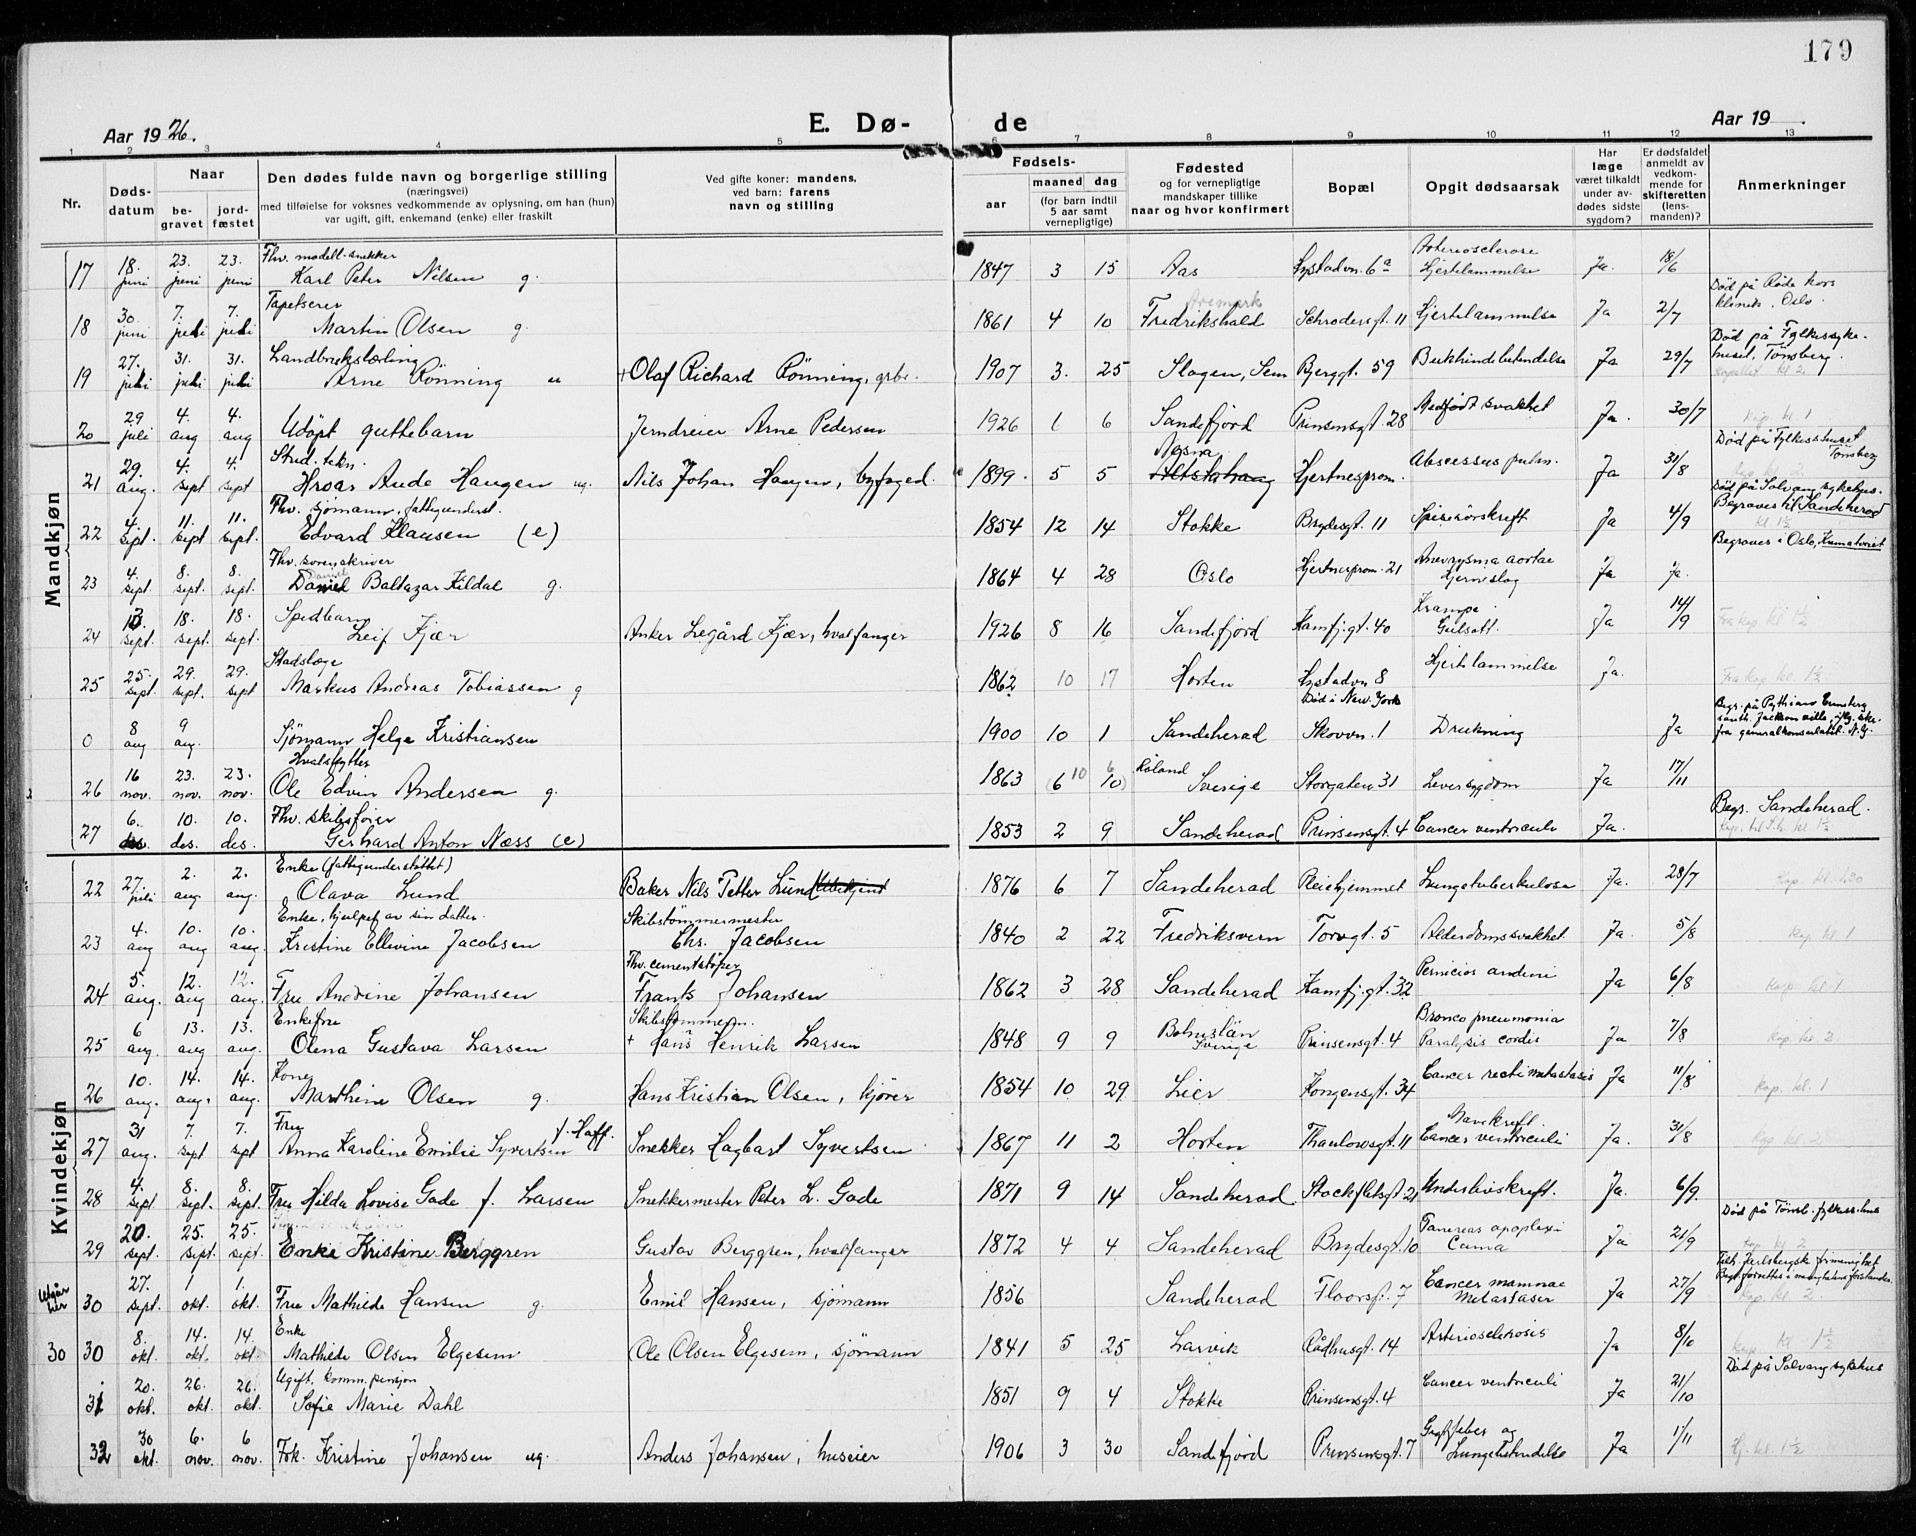 179
Aar 1926.
E. Dø-
de
Aar 19 .
1 2 3 4 5 6 7 8 9 10 11 12 13
Nr.
Døds-
datum
Naar
be-
gravet
jord-
fæstet
Den dødes fulde navn og borgerlige stilling
(næringsvei)
med tilføielse for voksnes vedkommende av oplysning, om han (hun)
var ugift, gift, enkemand (enke) eller fraskilt
Ved gifte koner: mandens,
ved barn: farens
navn og stilling
Fødsels-
aar
maaned
dag
(for barn indtil
5 aar samt
vernepligtige)
Fødested
og for vernepligtige
mandskaper tillike
naar og hvor konfirmert
Bopæl
Opgit dødsaarsak
Har
læge
været tilkaldt
under av-
dødes sidste
sygdom?
Er dødsfaldet
anmeldt av
vedkom-
mende for
skifteretten
(lens-
manden)?
Anmerkninger
Mandkjøn
17 18. juni 23. juni 23. juni Fhv. modell-snekker Karl Peter Nilsen g. 1847 3 15 Aas Lystadvn. 6a Arteriosclerose Hjertelammelse Ja. 18/6
18 30 juni 7. juli 7. juli Tapetserer Martin Olsen g. 1861 4 10 Aremark Fredrikshald Schrodersgt. 11 Hjertelammelse Ja 2/7 Død på Røde kors klinik. Oslo.
19 27. juli 31. juli 31. juli Landbrukslærling Arne Rönning + Olaf Richard Rönning, arb. 1907 3. 25 Slagen, Sem Bjerggt. 59 Bukhindebetendelse Ja 29/7 Død på Fylkessyke- huset, Tønsberg. Kapellet kl 2.
20 29 juli 4. aug 4. aug Udöpt guttebarn Jerndreier Arne Pedersen 1926 1 6 Sandefjord Prinsensgt. 28 Medfødt svakhet Ja. 30/7 Kap. kl. 1
21 29. aug. 4. sept 4. sept Stud. tekn. Hroar Aude Haugen ug. Nils Johan Haugen, byfoged. 1899. 5 5 Nesna Alstahaug Hjertnesprom. Abscessus pulm. Ja 31/8 Død på Fylkesshuset Tönsberg
22 4. sept. 11. sept 11. sept. Fhv. sjömann, fattigunderst. Edvard Klausen (e) 1854 12 14 Stokke Brydesgt. 11 Spiserörskreft Ja 4/9 Død på Solvang sykehus. Begraves til Sandeherad kl 1½
23 4. sept. 8. sept. 8. sept. Fhv. sorenskriver Daniel Baltazar Kildal g. 1864 4 28 Oslo Hjertnesprom. 21 Anevrysma aortae Hjerneslag Ja Ja. Begraves i Oslo, Krematoriet
24 13 sept. 18. sept. 18. sept. Spedbarn Leif Fjær Anker Legård Fjær, hvalfanger 1926 8 16 Sandefjord Kamfjgt. 40 Krampe Gulsott. Ja 14/9 Fra kap. kl 1½
25 25. sept. 29. sept. 29. sept Stadslæge Markus Andreas Tobiassen g 1862 10 17 Horten Lystadvn 8 Hjertelammelse Ja. Fra kap. kl. 1½
0 8 aug 9 aug. Sjömann Helge Kristiansen 1900 10 1 Sandeherad Død i New York Skovvn. 1 Drukning Ja
26 16 nov. 23. nov. 23. nov. Hvalflytter Ole Edvin Andersen g. 1863 (6 10 6 10) Röland Sverige Storgaten 31 Leversygdom Ja 17/11
27 6. des. 10. des. 10. des. Fhv. skibsfører Gerhard Anton Næss (e) 1853 2 9 Sandeherad Prinsensgt. 4 Cancer ventriculi Ja. Begr. Sandeherad.
Kvindekjøn
22 27. juli 2. aug. 2. aug. Enke (fattigunderstöttet) Olava Lund Baker Nils Petter Lund 1876 6 7 Sandeherad Pleiehjemmet Lungetuberkulose Ja. 28/7 Kap. kl. 1.30
23 4. aug 10. aug 10. aug. Enke, hjulpet av sin datter. Kristine Ellevine Jacobsen Skibstömmermester Chr. Jacobsen 1840 2 22 Fredriksvern Torvgt. 5 Alderdomssvakhet Ja. 5/8 Kap. kl. 1
24 5. aug. 12. aug 12. aug. Fru Andrine Johansen Fhv. cementstöper Frants Johansen 1862 3 28 Sandeherad Kamfj.gt. 32 Pernicios anemi Ja 6/8 Kap. kl. 1
25 6 aug. 13. aug 13. aug. Enkefru Olena Gustava Larsen Skibstömmerm. + Hans Henrik Larsen 1848 9 9 Bohuslän Sverige Prinsensgt. 4 Bronco pneumonia Paralysis cordis Ja 7/8 Kap. kl. 2.
26 10. aug. 14. aug. 14. aug. Kone Marthine Olsen g. Hans Kristian Olsen, kjörer 1854 10 29 Lier Kongensgt. 34 Cancer recti metastasis Ja 11/8 Kap. kl. 1
27 31 aug. 7. sept 7. sept Fru Anna Karoline Emilie Syvertsen f. Hoff. Snekker Hagbart Syvertsen 1867 11 2 Horten Thaulowsgt. 11 Mavekreft. Cancer ventriculi Ja. 31/8 Kap. kl. 2
28 4. sept 8. sept. 8. sept. Fru Hilda Lovise Gade f. Larsen Snekkermester Peter L. Gade 1871 9 14 Sandeherad Stockfletsgt 21 Underlivskreft. Ja. 6/9.
29 20. sept. 25. sept. 25. sept. Enke Kristine Berggren Gustav Berggren, hvalfanger 1872 4 4 Sandeherad Brydesgt. 10 Pancreas apoplexi Coma Ja 21/9 Død på Tönsb. fylkess.hus Kap. kl 2
Utgår her 30 27. sept. 1 okt. 1. okt. Fru Mathilde Hansen g. Emil Hansen, sjömann 1856 Sandeherad Floorsgt. 7 Cancer mammae Metastaser Ja 27/9 Kap. kl. 2.
30 30 8. okt. 14. okt. 14. okt. Enke Mathilde Olsen Elgesem Ole Olsen Elgesem, sjömann 1841 5 25 Larvik Rådhusgt. 14 Arteriosclerosis Ja 8/10 Kap. kl. 1½
31 20. okt. 26. okt. 26. okt. Ugift. komm. pensjon Sofie Marie Dahl 1851 9 4 Stokke Prinsensgt. 4 Cancer ventriculi Ja 21/10 Død på Solvang sykehus
32 30 okt. 6. nov. 6 nov. Frk. Kristine Johansen ug. Anders Johansen, huseier 1906 3 30 Sandefjord Prinsensgt. 7 Gigtfeber og Lungebetendelse Ja 1/11 Hj. kl. 1½